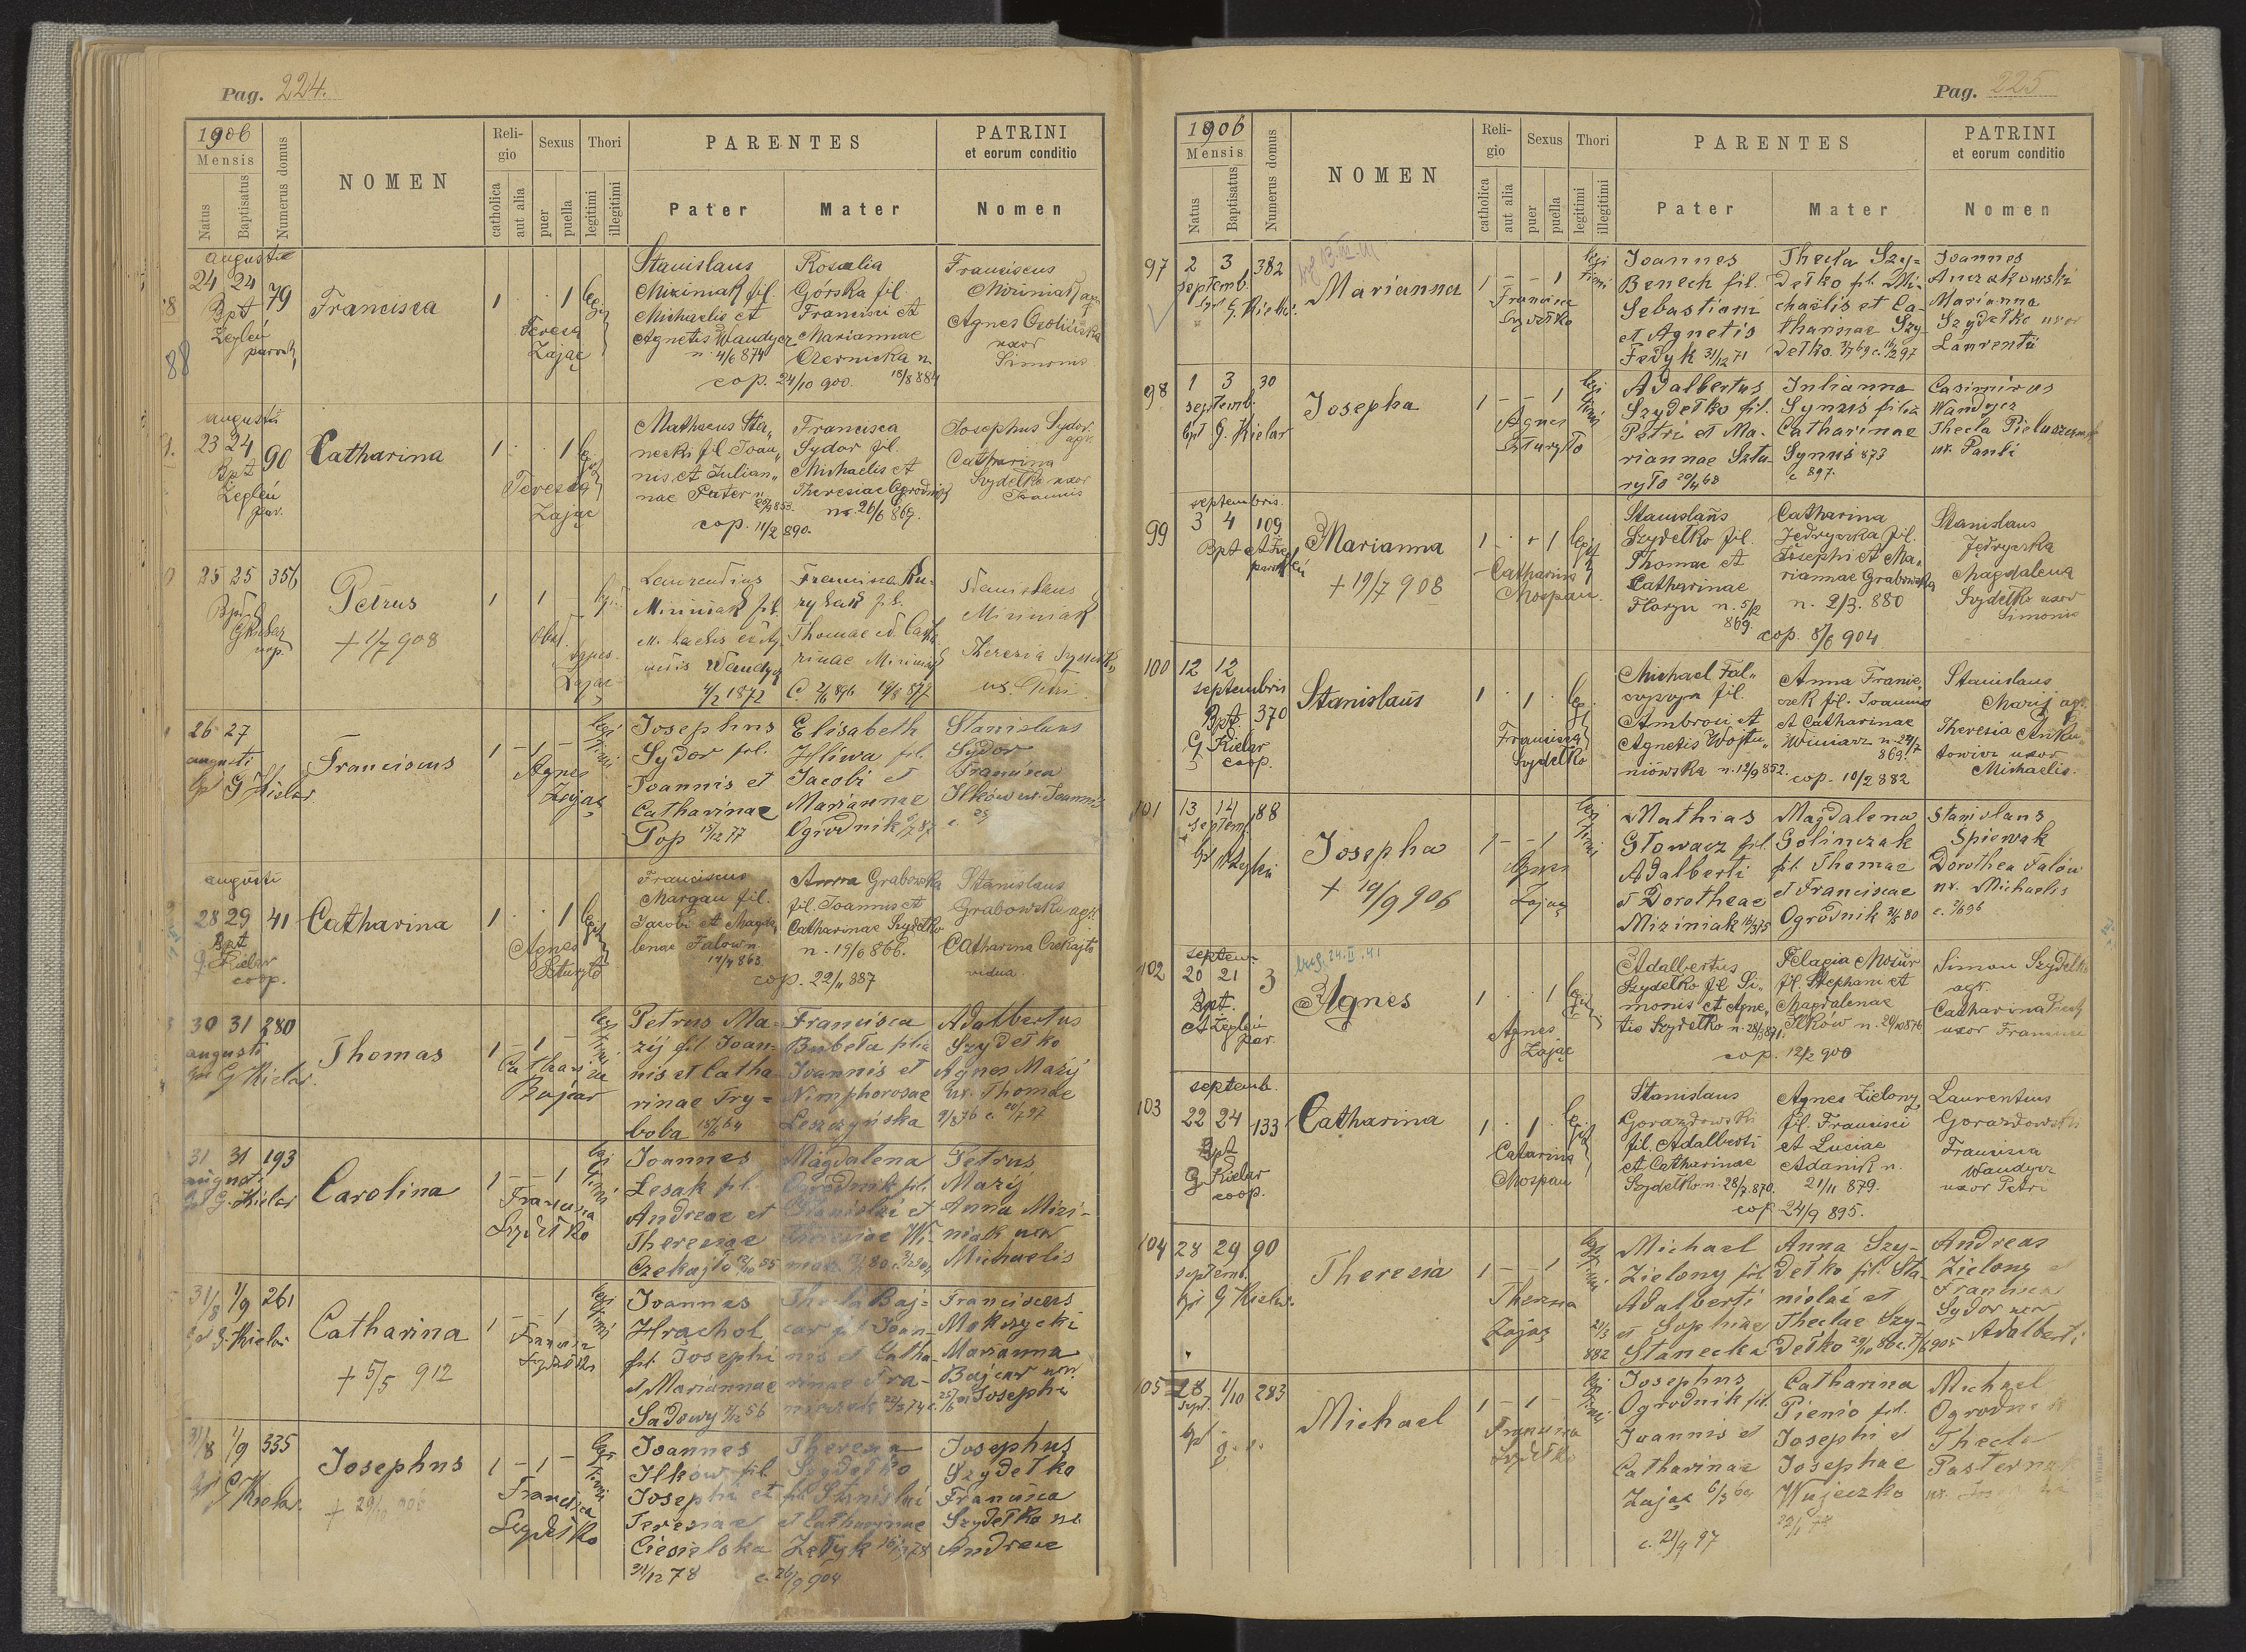 Pag. 224.
1906
Mensis
Natus
Baptisatus
Numerus domus
NOMEN
Religio
catholica
aut alia
Sexus
puer
puella
Thori
legitimi
illegitimi
PARENTES
Pater
Mater
PATRINI
et eorum conditio
Nomen
88
augusti
24 24 79
Bpt
Żegleń
paroch
Francisca
1 1
Teresa
Zając
Stanislaus
Miziniak fil.
Michaelis et
Agnetis Wandycz
n. 4/6 874
Rosalia
Górska fil.
Francisci et
Mariannae
Czernicka n.
18/8 884
cop. 24/10 900.
Franciscus
Miziniak agr
Agnes
uxor
Simonis
augusti
23 24 90
Bpt
Żegleń
par.
Catharina
1 1
Teresa
Zając
Mathaeus Sta„
necki fil Joan„
nis et Julian„
nae Pater n.
Francisca
Sydor fil.
Michaelis et
Theresiae Ogrodnik
nr. 26/6 869.
cop. 11/2 890.
Josephus Sydor
agr.
Catharina
Szydełko uxor
Joannis
25 25 356
Bpt
G Kielar
cop.
Petrus
+ 1/7 908
1 1
Agnes
Zając
Laurentius
Miziniak fil.
Wandycz
4/2 1872
Francisca Ku-
rylak fil.
Thomae et Cath
rinae Miziniak
Stanislaus
Miziniak
Theresia Szydełko
ux. Petri
26 27
augusti
bpt G Kielar
Franciscus
1 – 1 –
legitimi
Agnes
Zając
Josephus
Sydor fil.
Joannis et
Catharinae
Pop 15/12 77
Elisabeth
Hliwa fil.
Jacobi et
Mariannae
Ogrodnik
Stanislaus
Sydor
Francisca
Ilków ux. Joannis
augusti
28 29 41
Bpt
G. Kielar
coop.
Catharina
1 1
Agnes
Szturyło
Franciscus
Margan fil.
Jacobi et Magda„
lenae Falow n.
17/4 863
Anna Grabowska
fil Joannis et
Catharinae Szydełko
n. 19/6 866.
cop. 22/11 887
Stanislaus
Grabowski agr.
Catharina Czekajło
vidua.
30 31 280
augusti
bpt G Kielar.
Thomas
1 – 1 –
legitimi
Catharina
Bajcar
Petrus Ma-
zij fil. Joan-
nis et Catha-
rinae Try=
boba 15/6 64
Francisca
Bubeła filia
Joannis et
Nimphorosae
Leszczyńska
Adalbertus
Szydełko
Agnes Mazij
ux. Thomae
9/8 76 c. 20/7 97
31 31 193
augusti
bpt G. Kielar
Carolina
1 – – 1
legitimi
Francisca
Szydełko
Joannes
Lesak fil.
Andreae et
Theresiae
Czekajło
Magdalena
Ogrodnik fil.
Stanislai et
Theresiae Wi-
Petrus
Mazij
Anna Mizi-
niak uxor
Michaelis
31/8 1/9 261
bpt G. Kielar
Catharina
+ 5/5 912
1 – – 1
legitimi
Francisca
Szydełko
Joannes
Hrachol
fil. Josephi
et Mariannae
Sadowy 3/12 56
Thecla Baj-
car fil Joan-
nis et Catha-
rinae Fra-
Franciscus
Mokrzycki
Marianna
Bajcar uxor
Josephi
31/8 1/9 335
bpt G Kielar
Josephus
+ 29/10 906
1 – 1 –
legitimi
Francisca
Szydełko
Joannes
Ilków fil.
Josephi et
Teresiae
Ciesielska
31/12 78
Theresia
Szydełko
fil Stanislai
et Catharinae
Zełyk
c. 26/9 904
Josephus
Szydełko
Francisca
Szydełko ux.
Andreae
Pag. 225
1906
Mensis
Natus
Baptisatus
Numerus domus
NOMEN
Religio
catholica
aut alia
Sexus
puer
puella
Thori
legitimi
illegitimi
PARENTES
Pater
Mater
PATRINI
et eorum conditio
Nomen
97
2 3 382
septemb.
bpt G. Kielar
Marianna
1 – – 1
legitimi
Francisca
Szydełko
Joannes
Benech fil.
Sebastiani
et Agnetis
Fedyk 31/12 71
Thecla Szy=
dełko fil. Mi-
chaelis et Ca-
tharinae Szy-
dełko
Joannes
Anczakowski
Marianna
Szydełko uxor
Laurentii
98
1 3 30
septemb.
bpt G. Kielar
Josepha
1 – – 1
legitimi
Agnes
Szturyło
Adalbertus
Szydełko fil.
Petri et Ma-
riannae Sztu-
ryło 20/4 68
Julianna
Synuś filia
Catharinae
Synuś 873
c 897.
Casimirus
Wandycz
Thecla
ux. Pauli
99
septembris
3 4 109
Bpt A Żegleń
paroch
Marianna
+ 19/7 908
1 1
Catharina
Chospan.
Stanislaus
Szydełko fil.
Thomae et
Catharinae
Floryn n. 5/2
869.
Catharina
Jędryczka fil.
Josephi et Ma„
riannae Grabowska
n. 2/3. 880
cop. 8/6 904
Stanislaus
Jędryczka
Magdalena
Szydełko uxor
Simonis
100
12 12
septembris
Bpt 370
G Kielar
coop.
Stanislaus
1 1
Francisca
Szydełko
Michael Fal„
fil.
Ambrosii et
Agnetis Wojtu„
niowska n. 12/9 852.
Anna Franc„
czek fil. Joannis
et Catharinae
Winiarz n. 24/7
869.
cop. 10/2 882
Stanislaus
Mazij agr.
Theresia
towicz uxor
Michaelis.
101
13 14 88
septemb.
bpt Żegleń
Josepha
+ 19/9 906
1 – – 1
legitimi
Agnes
Zając
Mathias
Głowacz fil.
Adalberti
et Dorotheae
Miziniak
Magdalena
Golinczak
fil Thomae
et Franciscae
Ogrodnik 31/5 80
Stanislaus
Śpiewak
Dorothea Falów
ux. Michaelis
c. 2/6 96
102
septem-
20 21 3
Bpt.
A Żegleń
par.
24.II.41
Agnes
1 1
Agnes
Zając
Adalbertus
Szydełko fil Si„
monis et Agne„
tis Szydełko n. 28/3 871.
Pelagia Mazur
fil. Stephani et
Magdalenae
Ilków n. 29/10 876
cop. 12/2 900
Simon Szydełko
agr.
Catharina
uxor Francisci
103
septemb.
22 24 133
Bpt
G. Kielar
coop.
Catharina
1 1
Catarina
Chospan
Stanislaus
Gorazdowski
fil. Adalberti
et Catharinae
Szydełko n. 28/7 870.
Agnes Zielony
fil. Francisci
et Luciae
Adamik n.
21/11 879.
cop 24/9 895.
Laurentius
Gorazdowski
Francisca
Wandycz
uxor Petri
104
28 29 90
septemb.
bpt G Kielar.
Theresia
1 – – 1
legitimi
Theresia
Zając
Michael
Zielony fil
Adalberti
et Sophiae
Stanecka
21/3
882
Anna Szy-
dełko fil. Sta-
nislai et
Theclae Szy-
dełko
Andreas
Zielony et
Francisca
Sydor uxor
Adalberti
105
28 1/10 283
sept.
bpt
Michael
1 – 1 –
legitimi
Francisca
Szydełko
Josephus
Ogrodnik fil.
Joannis et
Catharinae
Zając 6/3 69
c. 21/9 97
Catharina
Pienio fil.
Josephi et
Josephae
Wujeczko
Michael
Ogrodnik
Thecla
Pasternak